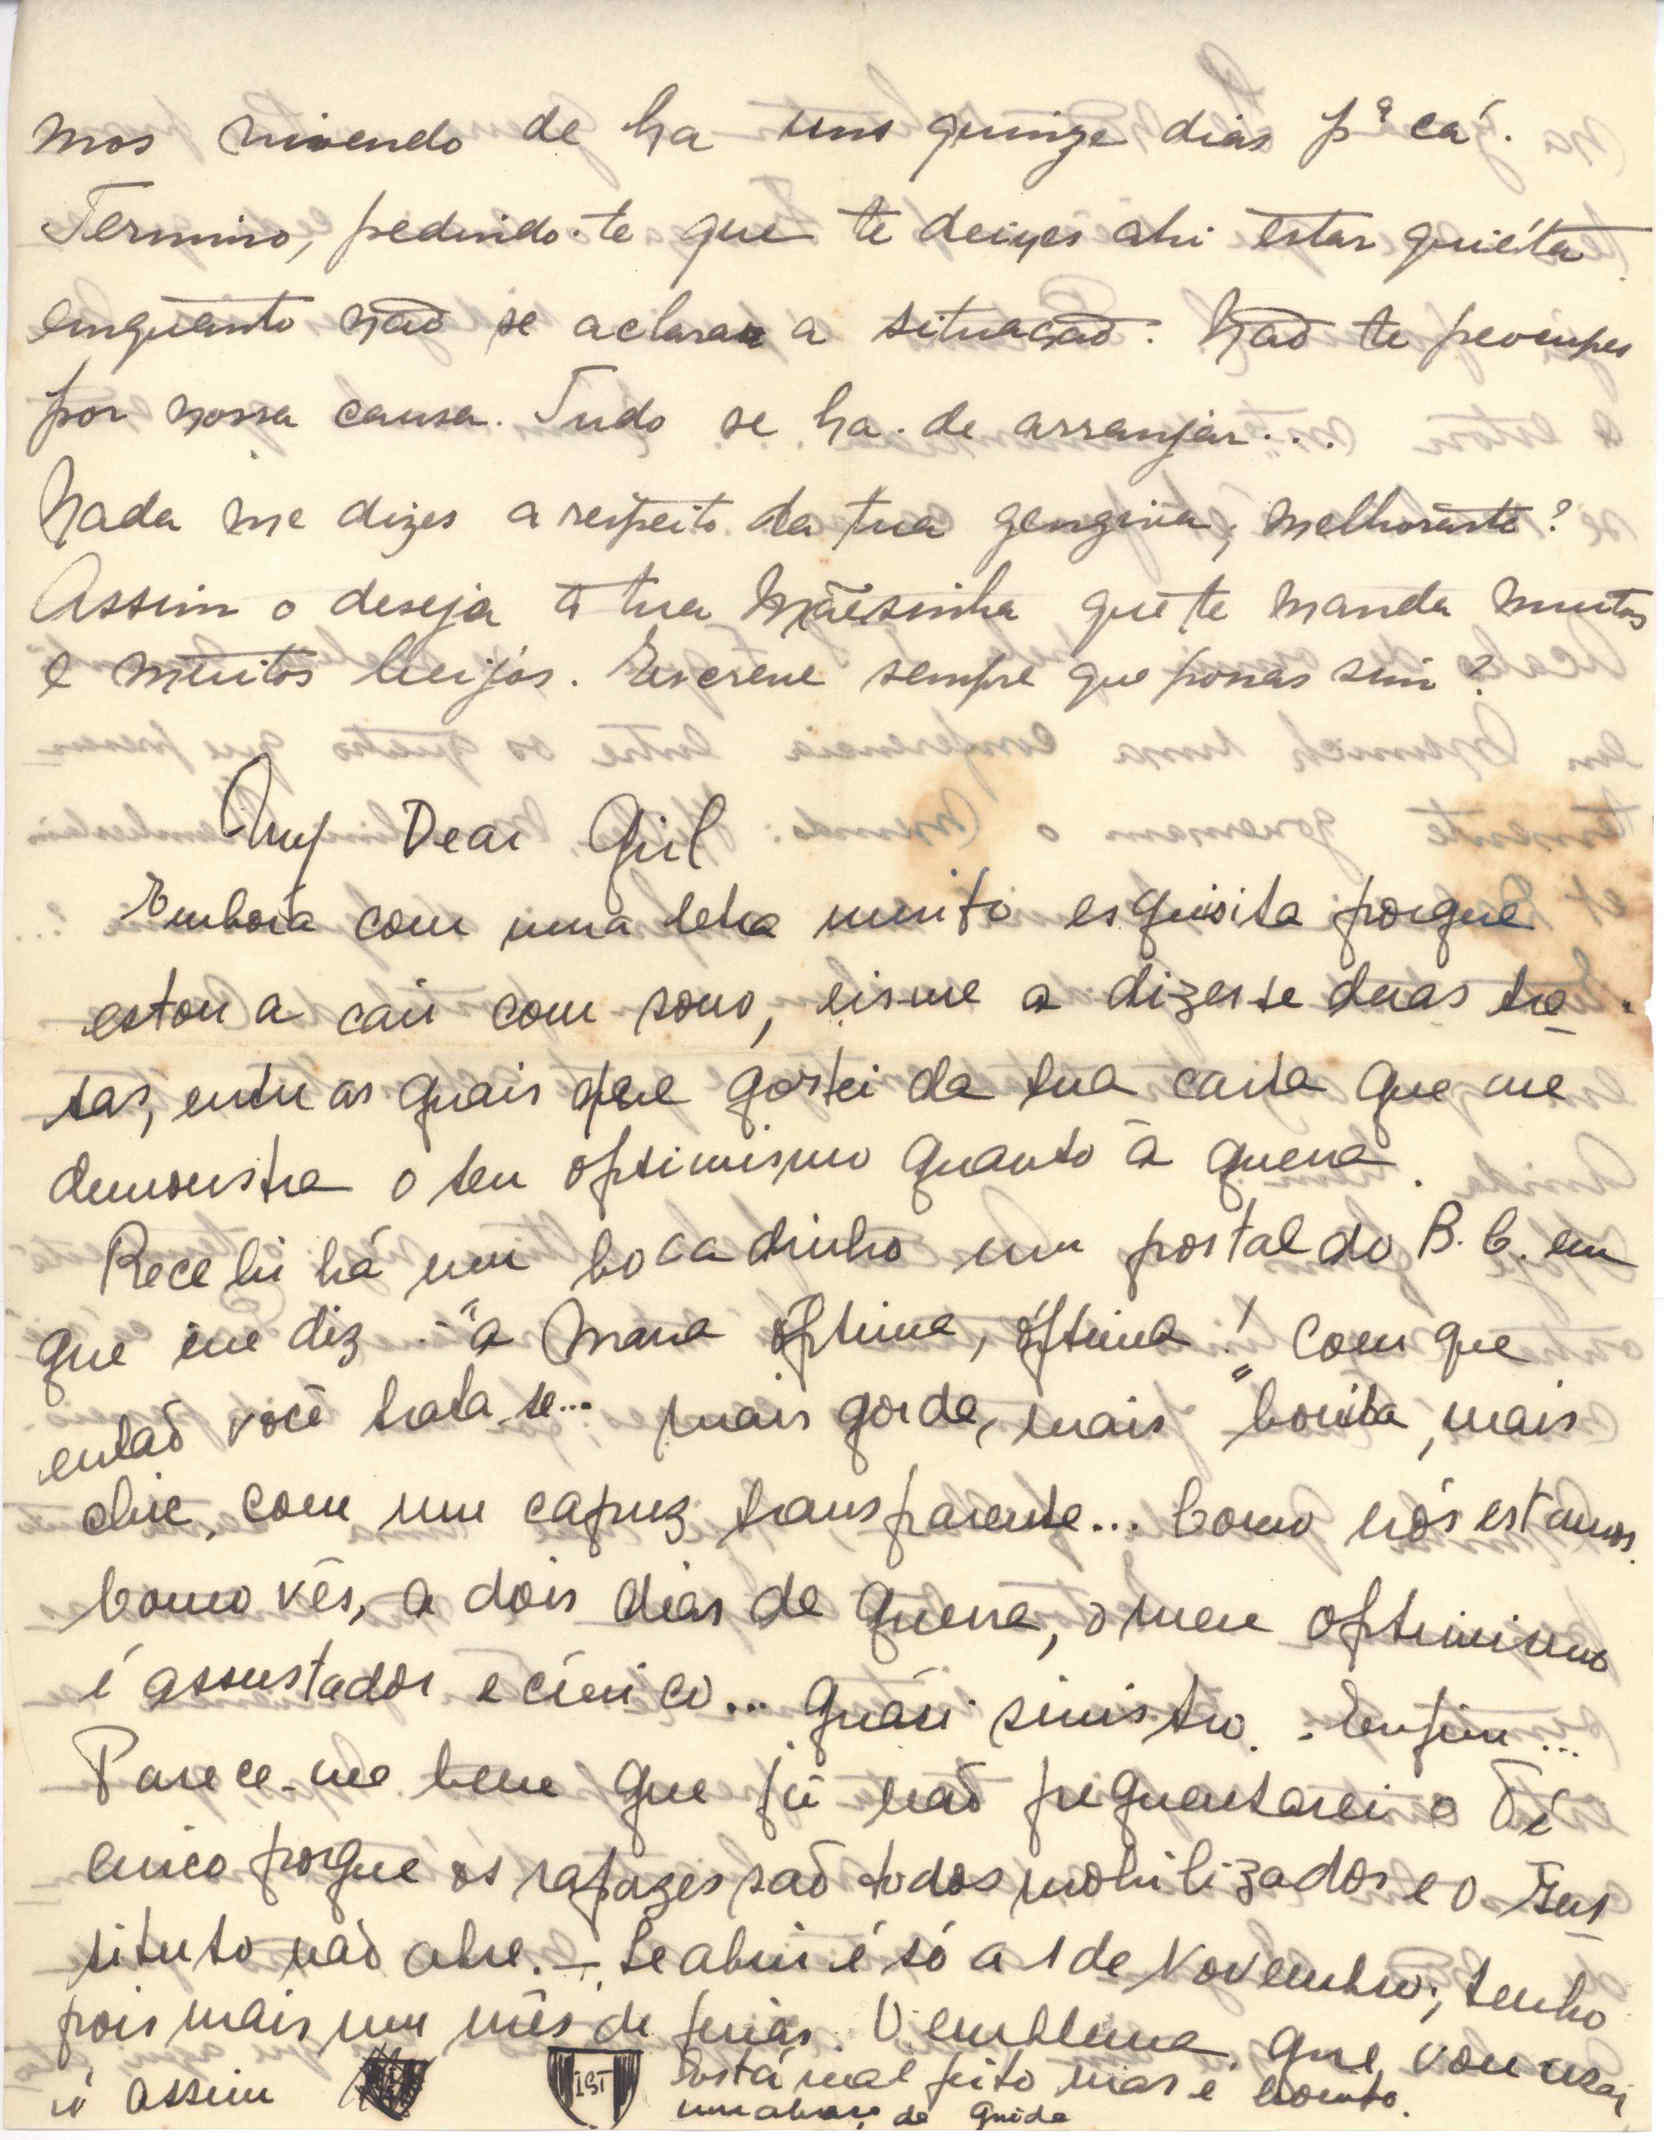 mos vivendo de ha uns quinze dias pª cá.
Termino, pedindo-te que te deixes ahi estar quiéta
emquanto não se aclarar a situação. Não te preocupes
por nossa causa. Tudo se ha-de arranjar...
Nada me dizes a respeito da tua gengiva, melhoráste?
Assim o deseja a tua Mãesinha que te manda muitos
e muitos beijos. Escreve sempre que possas sim?
My Dear Girl
Embora com uma letra muito esquisita porque
estou a cair com sono, eis-me a dizer-te duas tre-
tas, entre as quais que gostei da tua carta que me
demonstra o teu optimismo quanto à guerra.
Recebi há um bocadinho um postal do B. C. em
que me diz - "a Mana óptima, óptima!" Com que
então você trata-se... mais gorda, mais bonita, mais
chic, com um capuz transparente... Como nós estamos.
Como vês, a dois dias de guerra, o meu optimismo
é assustador e cínico... quási sinistro. - Enfim...
Parece-me bem que já não frequentarei o Té
cnico porque os rapazes são todos mobilizados e o Ins
tituto não abre. - Se abrir é só a 1 de Novembro; tenho
pois mais um mês de ferias. O emblema que vou usar
é assim
IST
Está mal feito mas é bonito.
um abraço da Guida